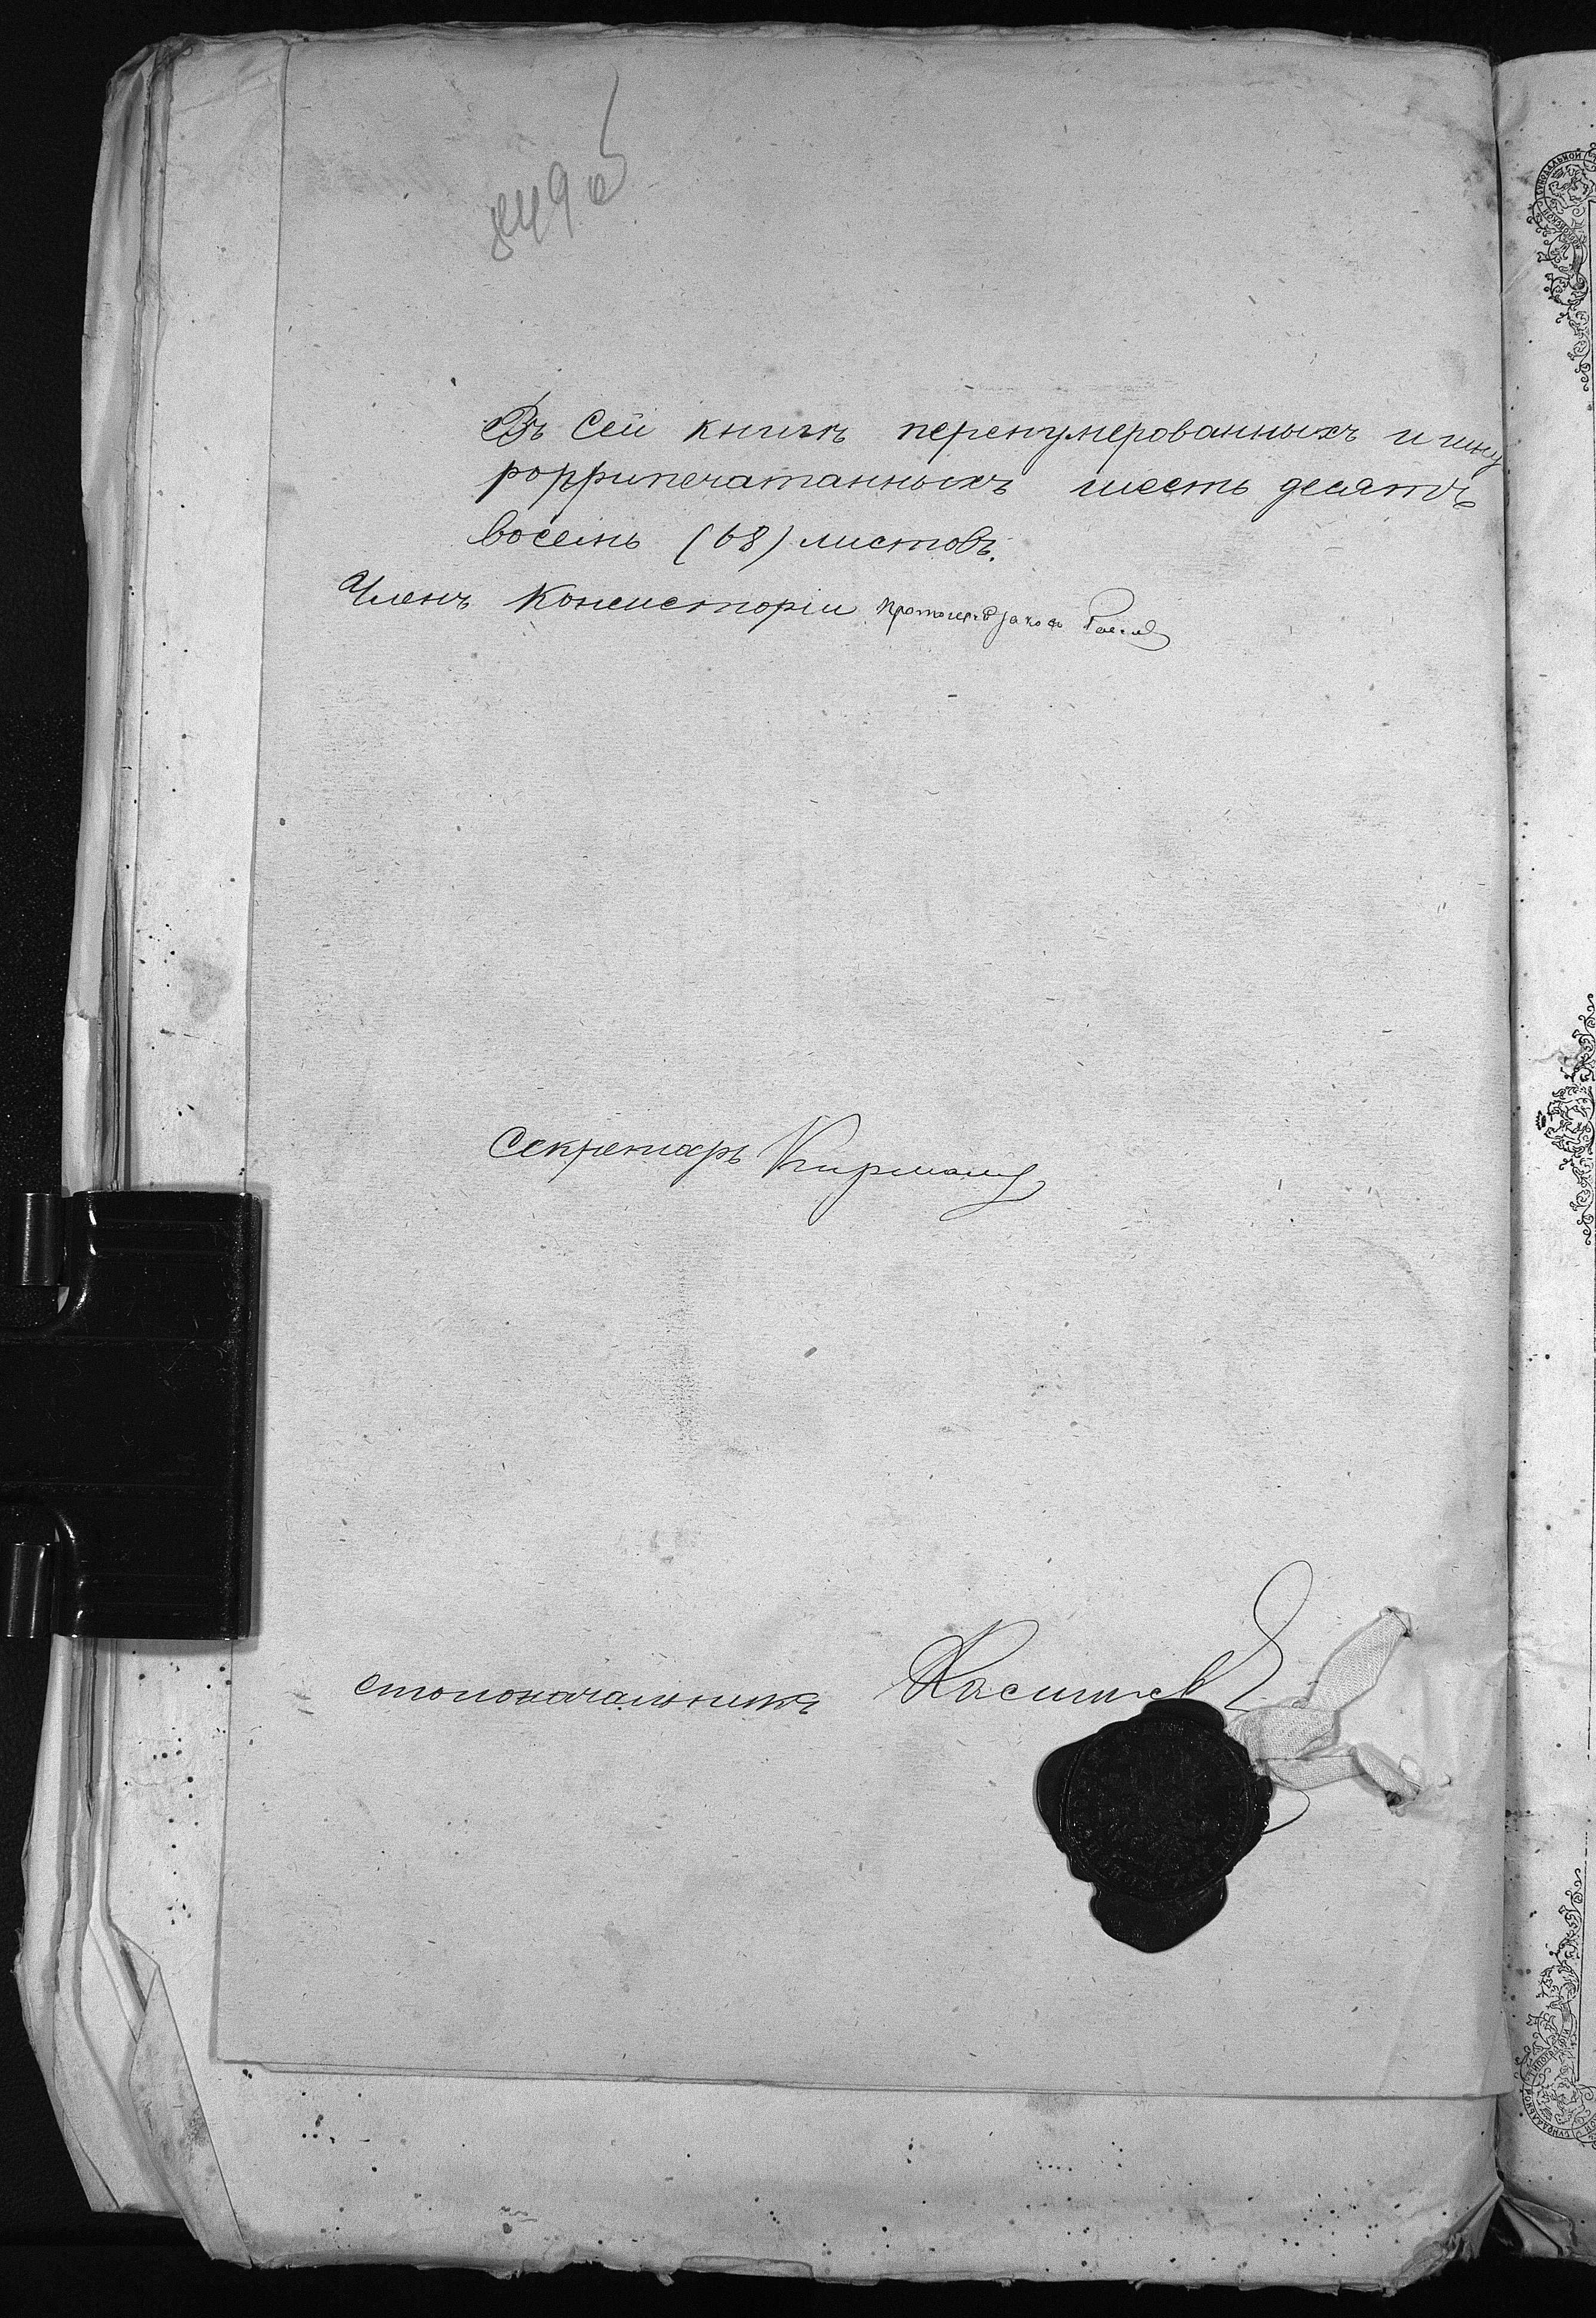 849 об
Въ сей книгѣ перенумерованныхъ и шну
роприпечатанныхъ шесть десятъ
восемь (68) листовъ.
Членъ Консисторіи Протоіерей
Секретарь
Столоначальникъ